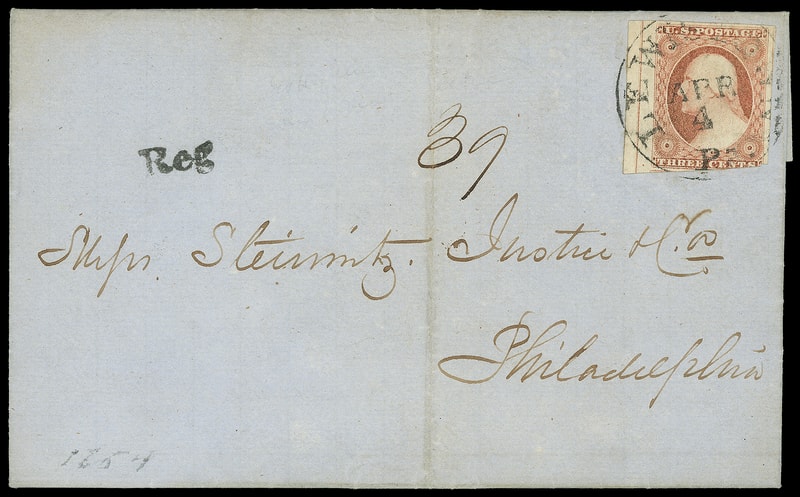 U.S. POSTAGE
THREE CENTS
APR
4
Pa
39
Reg
Messrs. Steinmitz. Justice & Co.
Philadelphia
1854